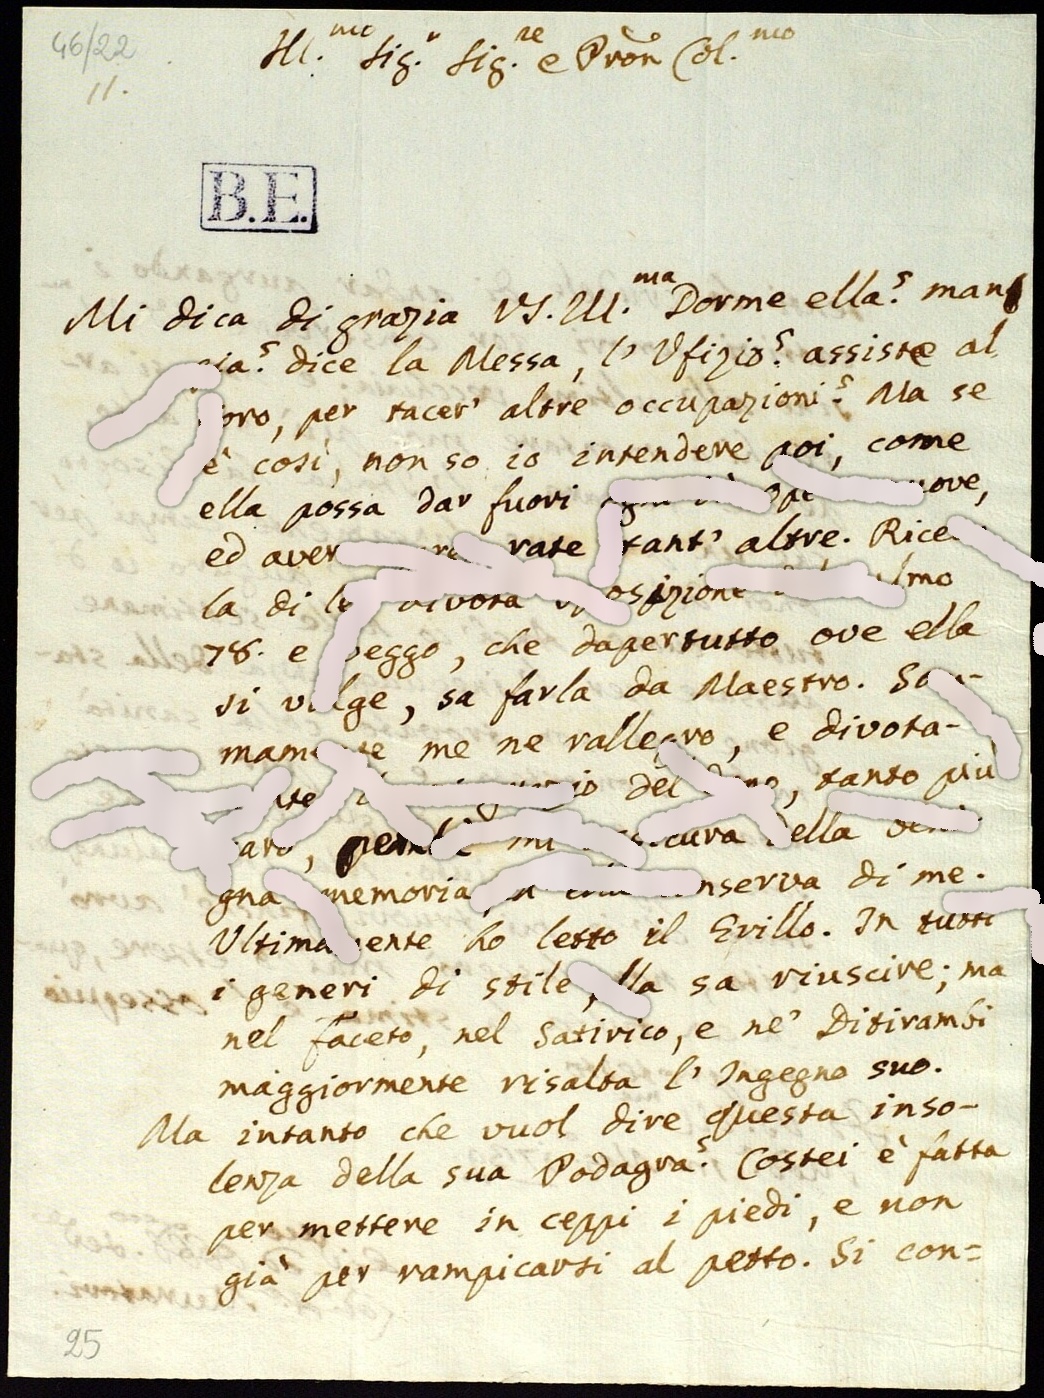 46/22
11.
Ill.mo Sig.r Sig.re e Pron Col.mo
B.E.
Mi dica di grazia VS. Ill.ma Dorme ella? man
gia? dice la Messa, l' Ufizio? assiste al
oro, per tacer' altre occupazioni? Ma se
è così, non so io intendere poi, come
ella possa dar fuori nuove,
ed aver tant' altre. Rice
la di
78. e leggo, che dapertutto ove ella
si volge, sa farla da Maestro. Som-
mamente me ne rallegro, e divota-
del tanto più
mi della beni
gna memoria, conserva di me.
Ultimamente ho letto il Grillo. In tutti
i generi di stile ella sa riuscire; ma
nel faceto, nel Satirico, e ne' Ditirambi
maggiormente risalta l' Ingegno suo.
Ma intanto che vuol dire questa inso-
lenza della sua Podagra? Costei è fatta
per mettere in ceppi i piedi, e non
già per rampicarsi al petto. Si con=
25